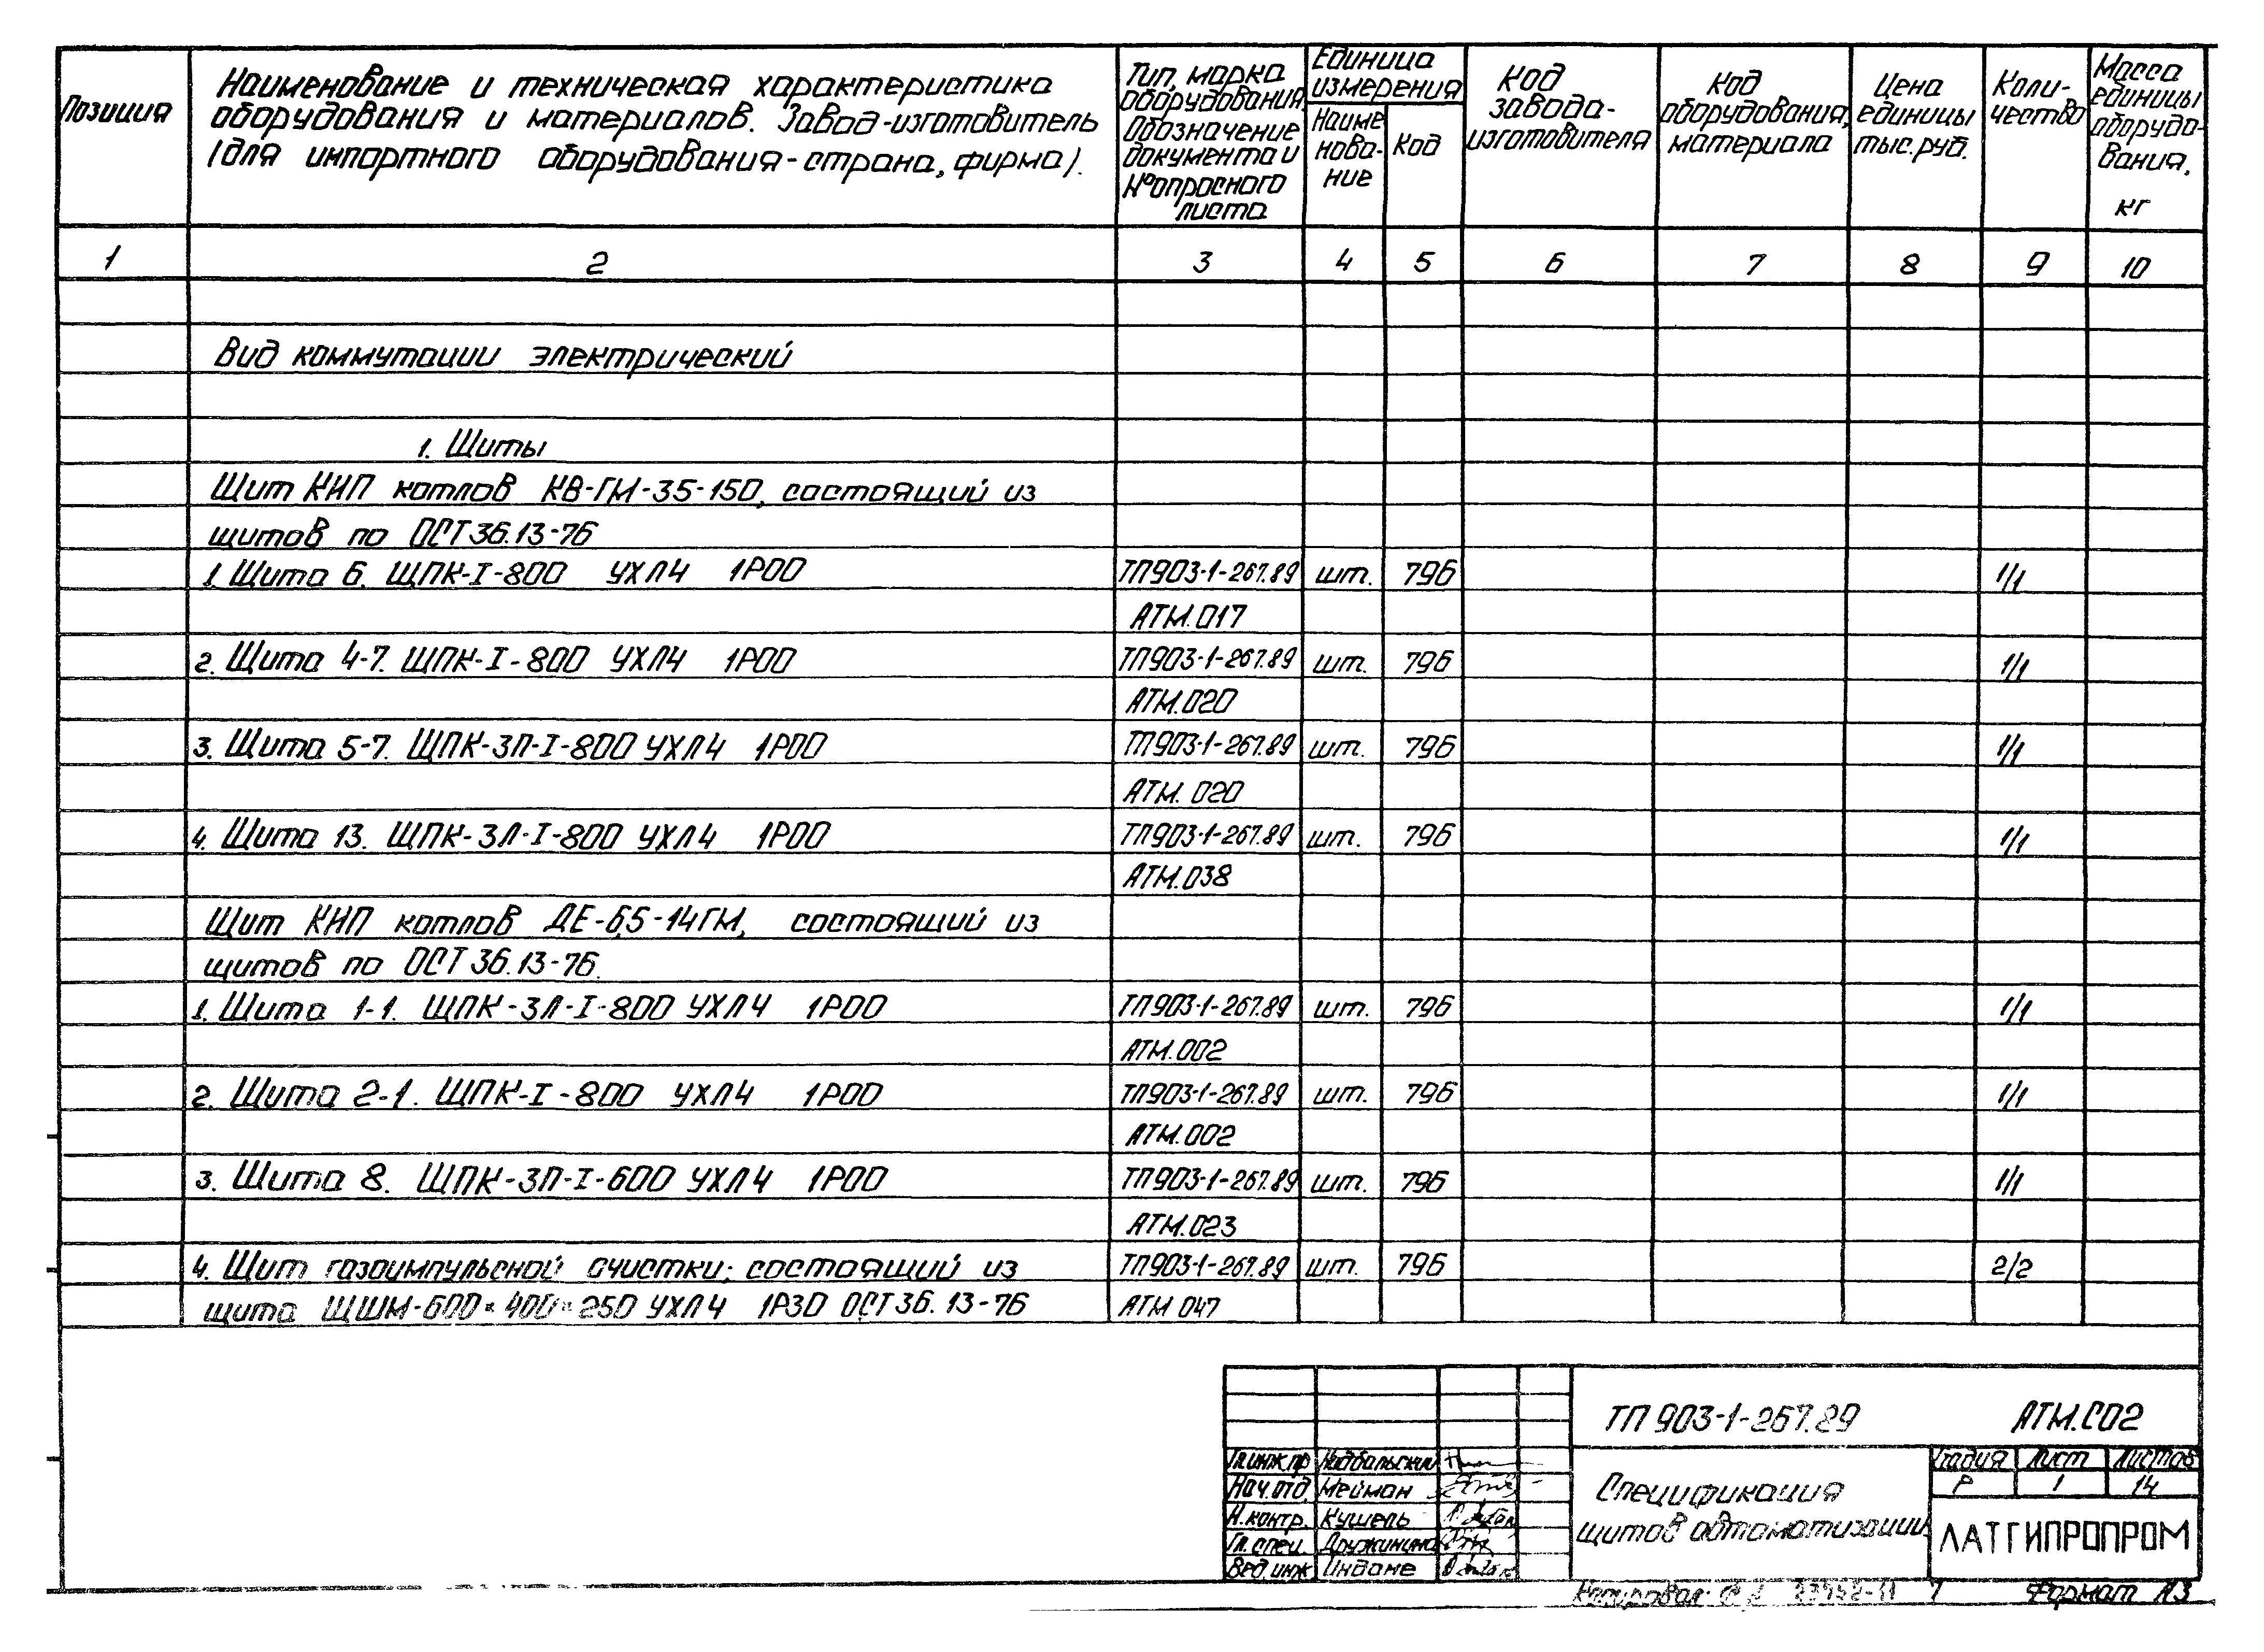 Позиция
Наименование и техническая характеристика
оборудования и материалов. Завод-изготовитель
(для импортного оборудования-страна, фирма).
Тип, марка
оборудования.
Обозначение
документа и
№ опросного
листа
Единица
измерения
Наиме
нова-
ние
Код
Код
завода-
изготовителя
Код
оборудования,
материала
Цена
единицы
тыс.руб.
Коли-
чество
Масса
единицы
оборудо-
вания,
кг
1 2 3 4 5 6 7 8 9 10
Вид коммутации электрический
1. Щиты
Щит КИП котлов КВ-ГМ-35-150, состоящий из
щитов по ОСТ 36.13-76
1. Щита 6. ЩПК-I-800 УХЛ4 1Р00 ТП903-1-267.89 шт. 796 1/1
АТМ.017
2. Щита 4-7. ЩПК-I-800 УХЛ4 1Р00 ТП903-1-267.89 шт. 796 1/1
АТМ.020
3. Щита 5-7. ЩПК-3П-I-800 УХЛ4 1Р00 ТП903-1-267.89 шт. 796 1/1
АТМ.020
4. Щита 13. ЩПК-3Л-I-800 УХЛ4 1Р00 ТП903-1-267.89 шт. 796 1/1
АТМ.038
Щит КИП котлов ДЕ-6,5-14ГМ, состоящий из
щитов по ОСТ 36.13-76.
1. Щита 1-1. ЩПК-3Л-I-800 УХЛ4 1Р00 ТП903-1-267.89 шт. 796 1/1
АТМ.002
2. Щита 2-1. ЩПК-I-800 УХЛ4 1Р00 ТП903-1-267.89 шт. 796 1/1
АТМ.002
3. Щита 8. ЩПК-3П-I-600 УХЛ4 1Р00 ТП903-1-267.89 шт. 796 1/1
АТМ.023
4. Щит газоимпульсной очистки; состоящий из ТП903-1-267.89 шт. 796 2/2
щита ЩШМ-600×400×250 УХЛ4 1Р30 ОСТ 36.13-76 АТМ 047
ТП 903-1-267.89 АТМ.С02
Гл.инж.пр Надбальский
Нач.отд. Мейман
Н.контр. Кушель
Гл. спец. Дружинина
Вед.инж Индане
Спецификация
щитов автоматизации
Стадия Лист Листов
Р 1 14
ЛАТГИПРОПРОМ
Копировал: 7 Формат А3